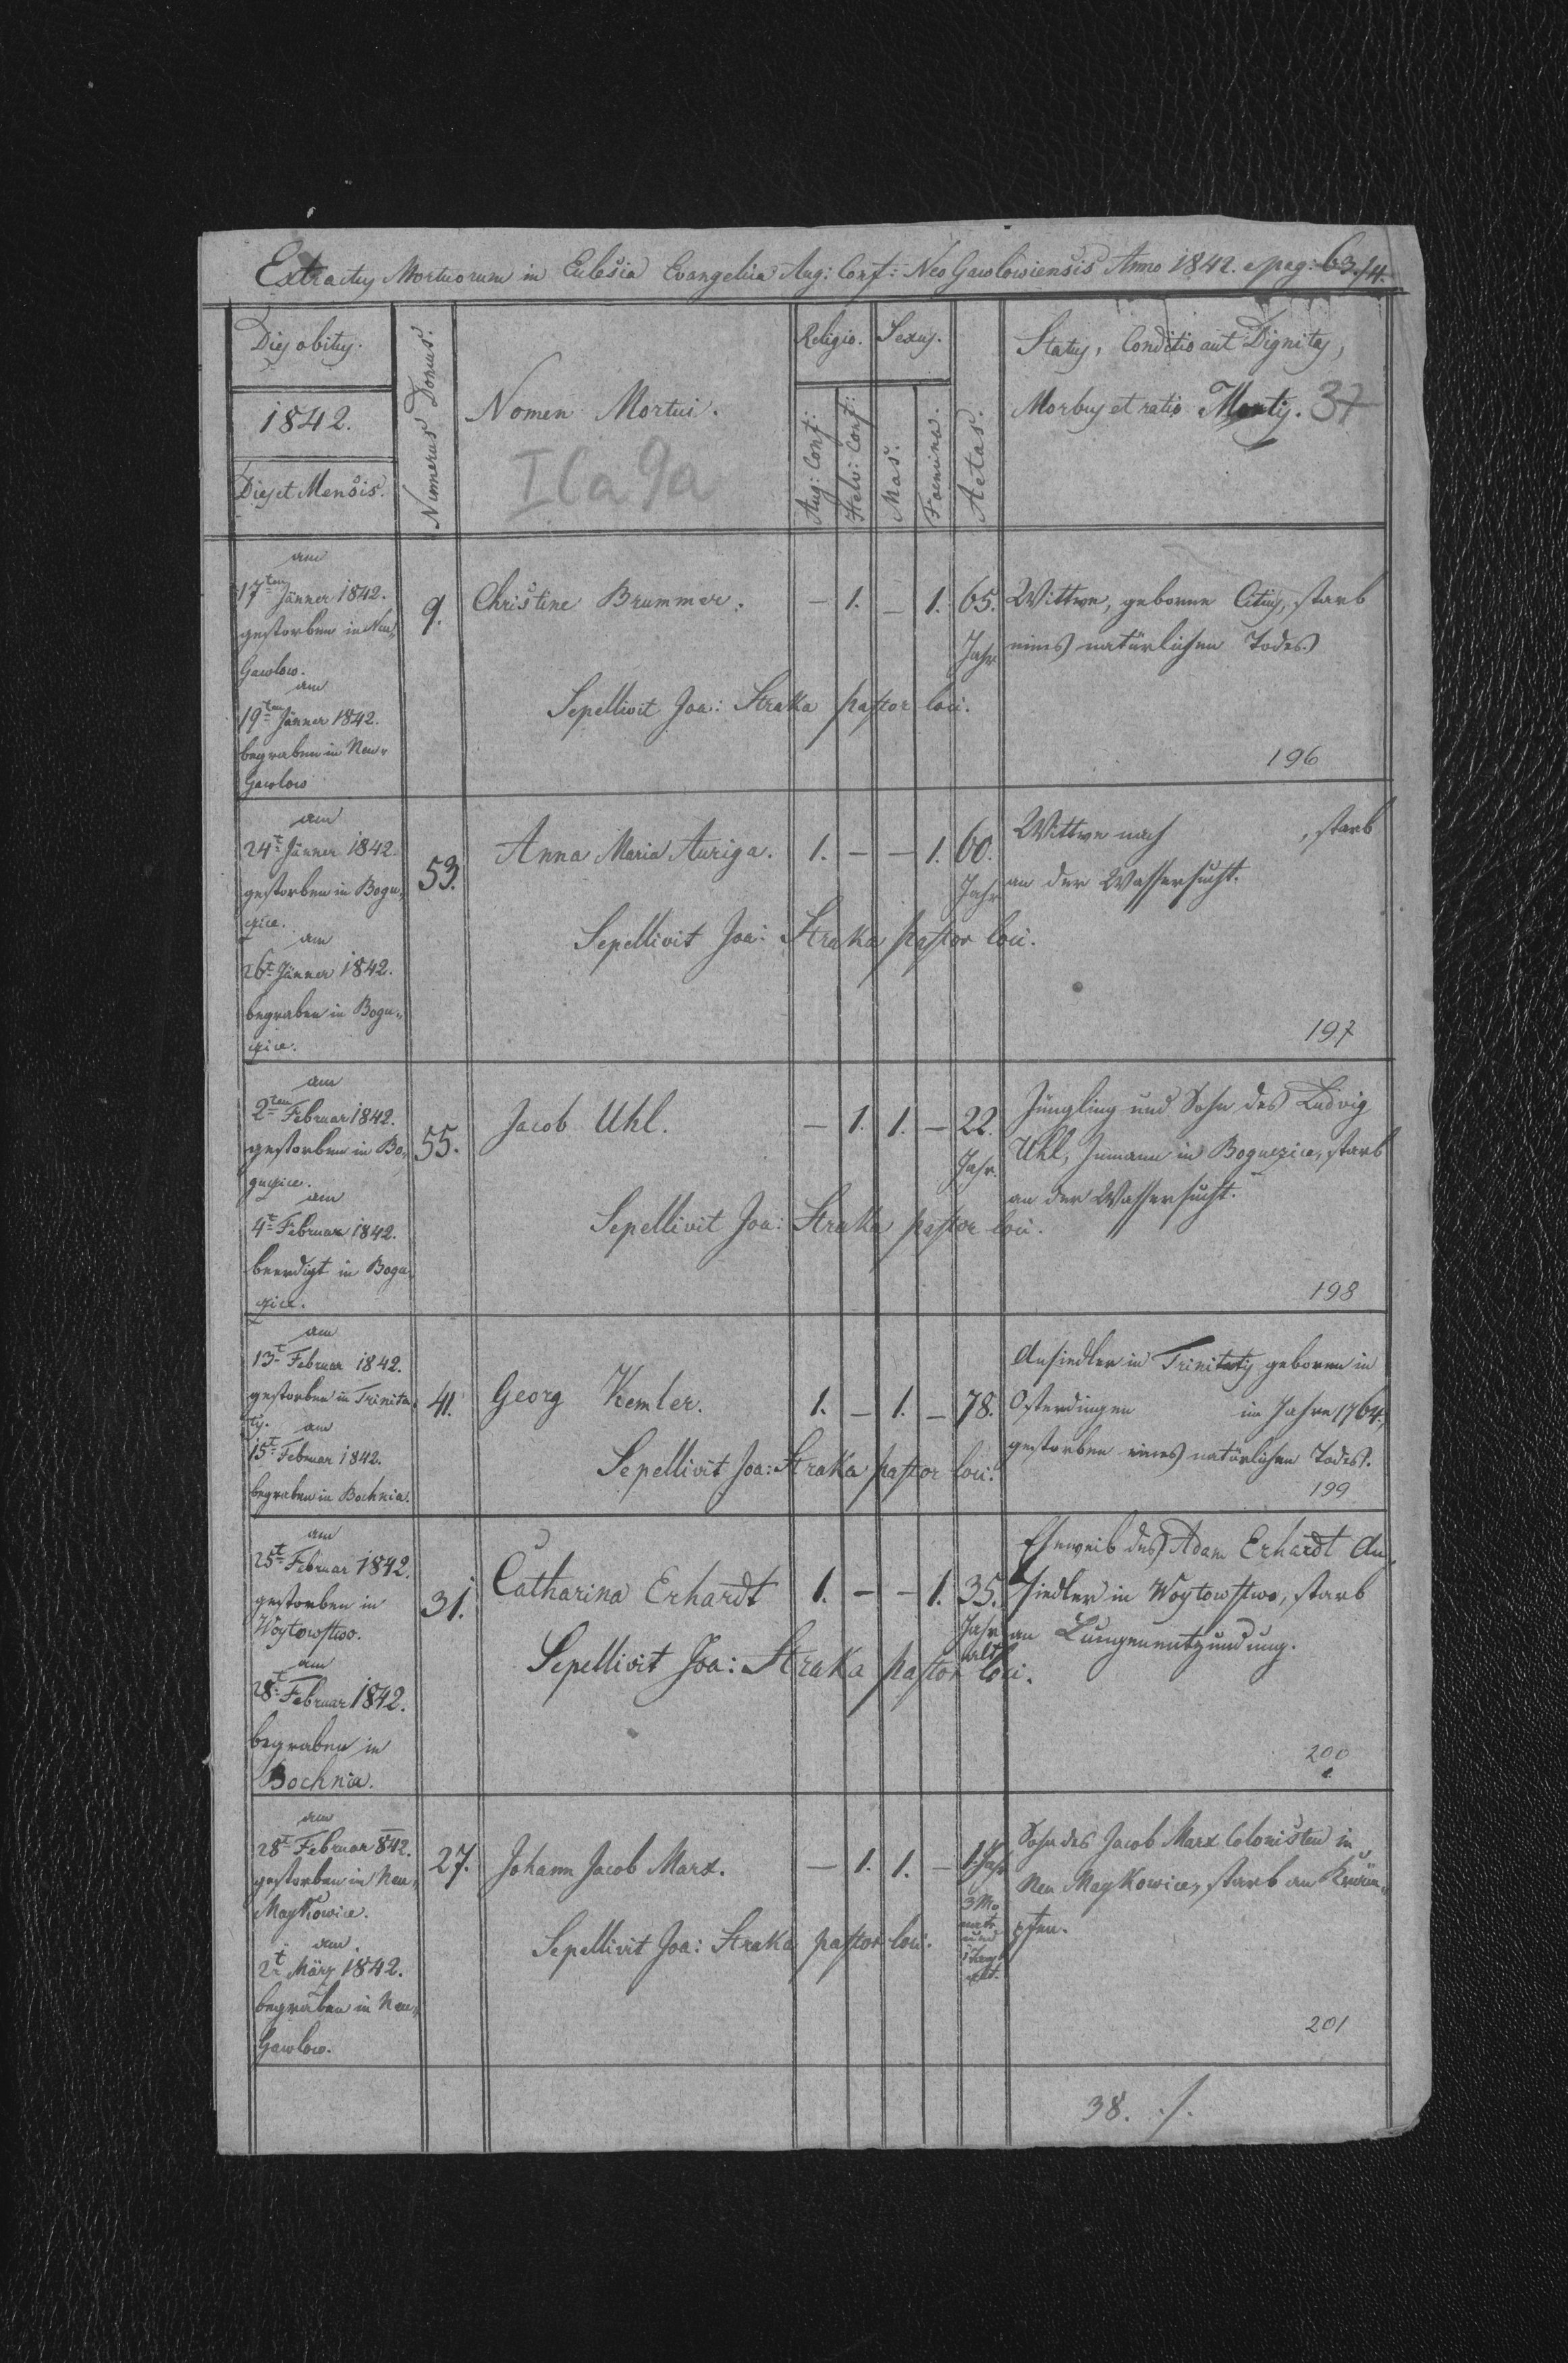 Extractus Mortuorum in Eclesia Evangelica Aug: Conf: Neo Gawlowiensis Anno 1842. pag: 63./4.
Dies obitus.
1842.
Dies et Mensis.
Numerus Domus.
Nomen Mortui.
I Ca 9a
Religio.
Aug: Conf:
Helv: Conf:
Sexus.
Mas.
Foemina.
Aetas.
Status, Conditio aut Dignitas,
Morbus et ratio Mortis. 37
am
17ten Jänner 1842.
gestorben in Neu,
Gawlow.
am
19ten Jänner 1842.
begraben in Neu-
Gawlow
9.
Christine Brummer.
— 1. — 1. 65.
Jahr
Wittwe, geborne, starb
eines natürlichen Todes.
Sepellivit Joa: Straka pastor loci.
196
am
24t Jänner 1842.
gestorben in Bogu,
cice.
am
26t Jänner 1842.
begraben in Bogu,,
cice.
53.
Anna Maria Auriga.
1. — — 1. 60.
Jahr
Wittwe nach , starb
an der Wassersucht.
Sepellivit Joa: Straka pastor loci.
197
am
2ten Februar 1842.
gestorben in Bo,
gucice.
am
4t Februar 1842.
beerdigt in Bogu,
cice.
55.
Jacob Uhl.
— 1. 1. — 22.
Jahr.
Jüngling und Sohn des Ludvig
Uhl, Inmann in Bogucice, starb
an der Wassersucht.
Sepellivit Joa: Straka pastor loci.
198
am
13t Februar 1842.
gestorben in Trinita,
tis.
am
15t Februar 1842.
begraben in Bochnia.
41.
Georg Kemler.
1. — 1. — 78.
Ansiedler in Trinitatis geboren in
Osterdingen im Jahre 1764,
gestorben eines natürlichen Todes.
Sepellivit Joa: Straka pastor loci.
199
am
25t Februar 1842.
gestorben in
Woytowstwo.
am
28t Februar 1842.
begraben in
Bochnia.
31.
Catharina Erhardt
1. — — 1. 35.
Jahr
alt
Eheweib des Adam Erhardt An,
siedler in Woytowstwo, starb
an Lungenentzündung.
Sepellivit Joa: Straka pastor loci.
200
am
28t Februar 842.
gestorben in Neu,
Maykowice.
am
2t März 1842.
begraben in Neu,,
Gawlow.
27.
Johann Jacob Marx.
— 1. 1. — 1. Jahr
3 Mo
nate
und
Tage
alt.
Sohn des Jacob Marx Colonisten in
Neu Maykowice, starb an Kräm,,
pfen.
Sepellivit Joa: Straka pastor loci.
201
38. ./.